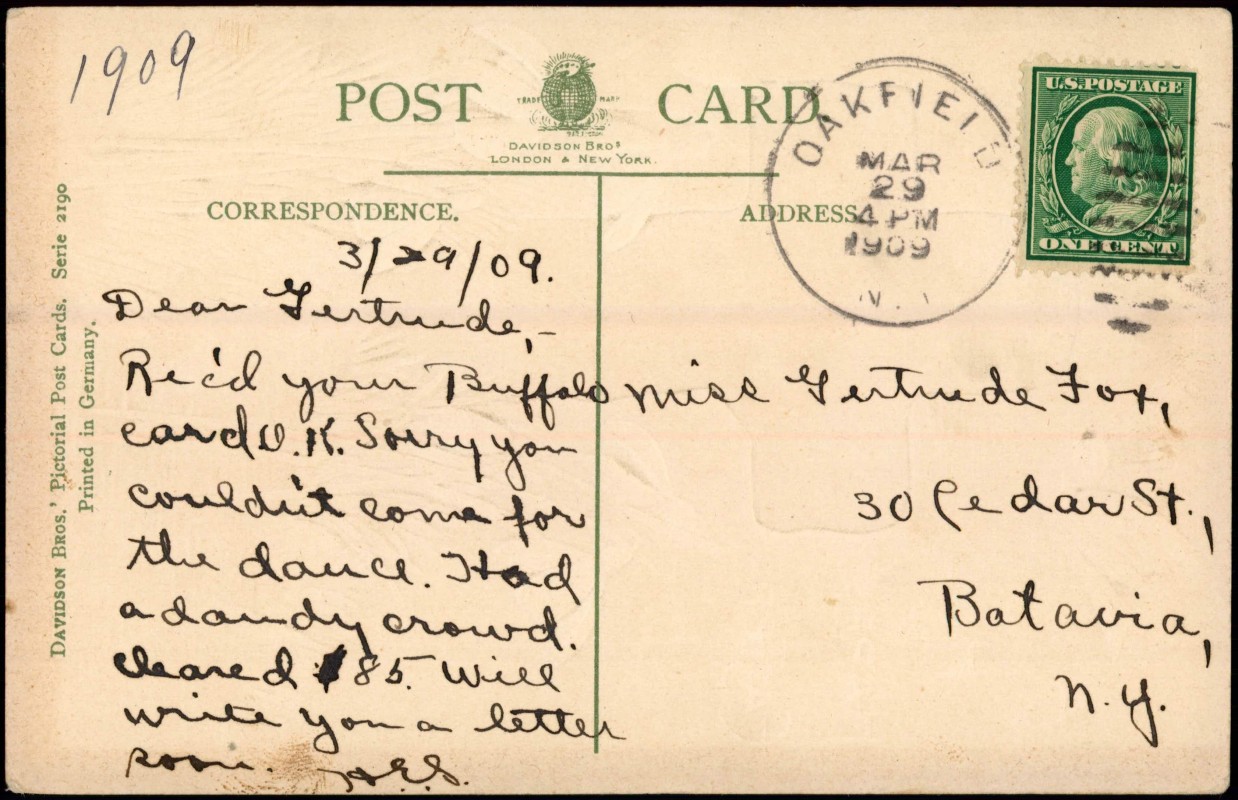 1909
POST CARD
TRADE MARK
DAVIDSON BROS
LONDON & NEW YORK.
OAKFIELD
MAR
29
4 PM
1909
N.
U.S. POSTAGE
ONE CENT
CORRESPONDENCE.
ADDRESS
3/29/09.
Dear Gertrude,-
Rec'd your Buffalo
card O.K. Sorry you
couldn't come for
the dance. Had
a dandy crowd.
cleared $85. Will
write you a letter
soon.
Miss Gertrude Fox,
30 Cedar St.,
Batavia,
N.Y.
DAVIDSON BROS.' Pictorial Post Cards. Serie 2190
Printed in Germany.